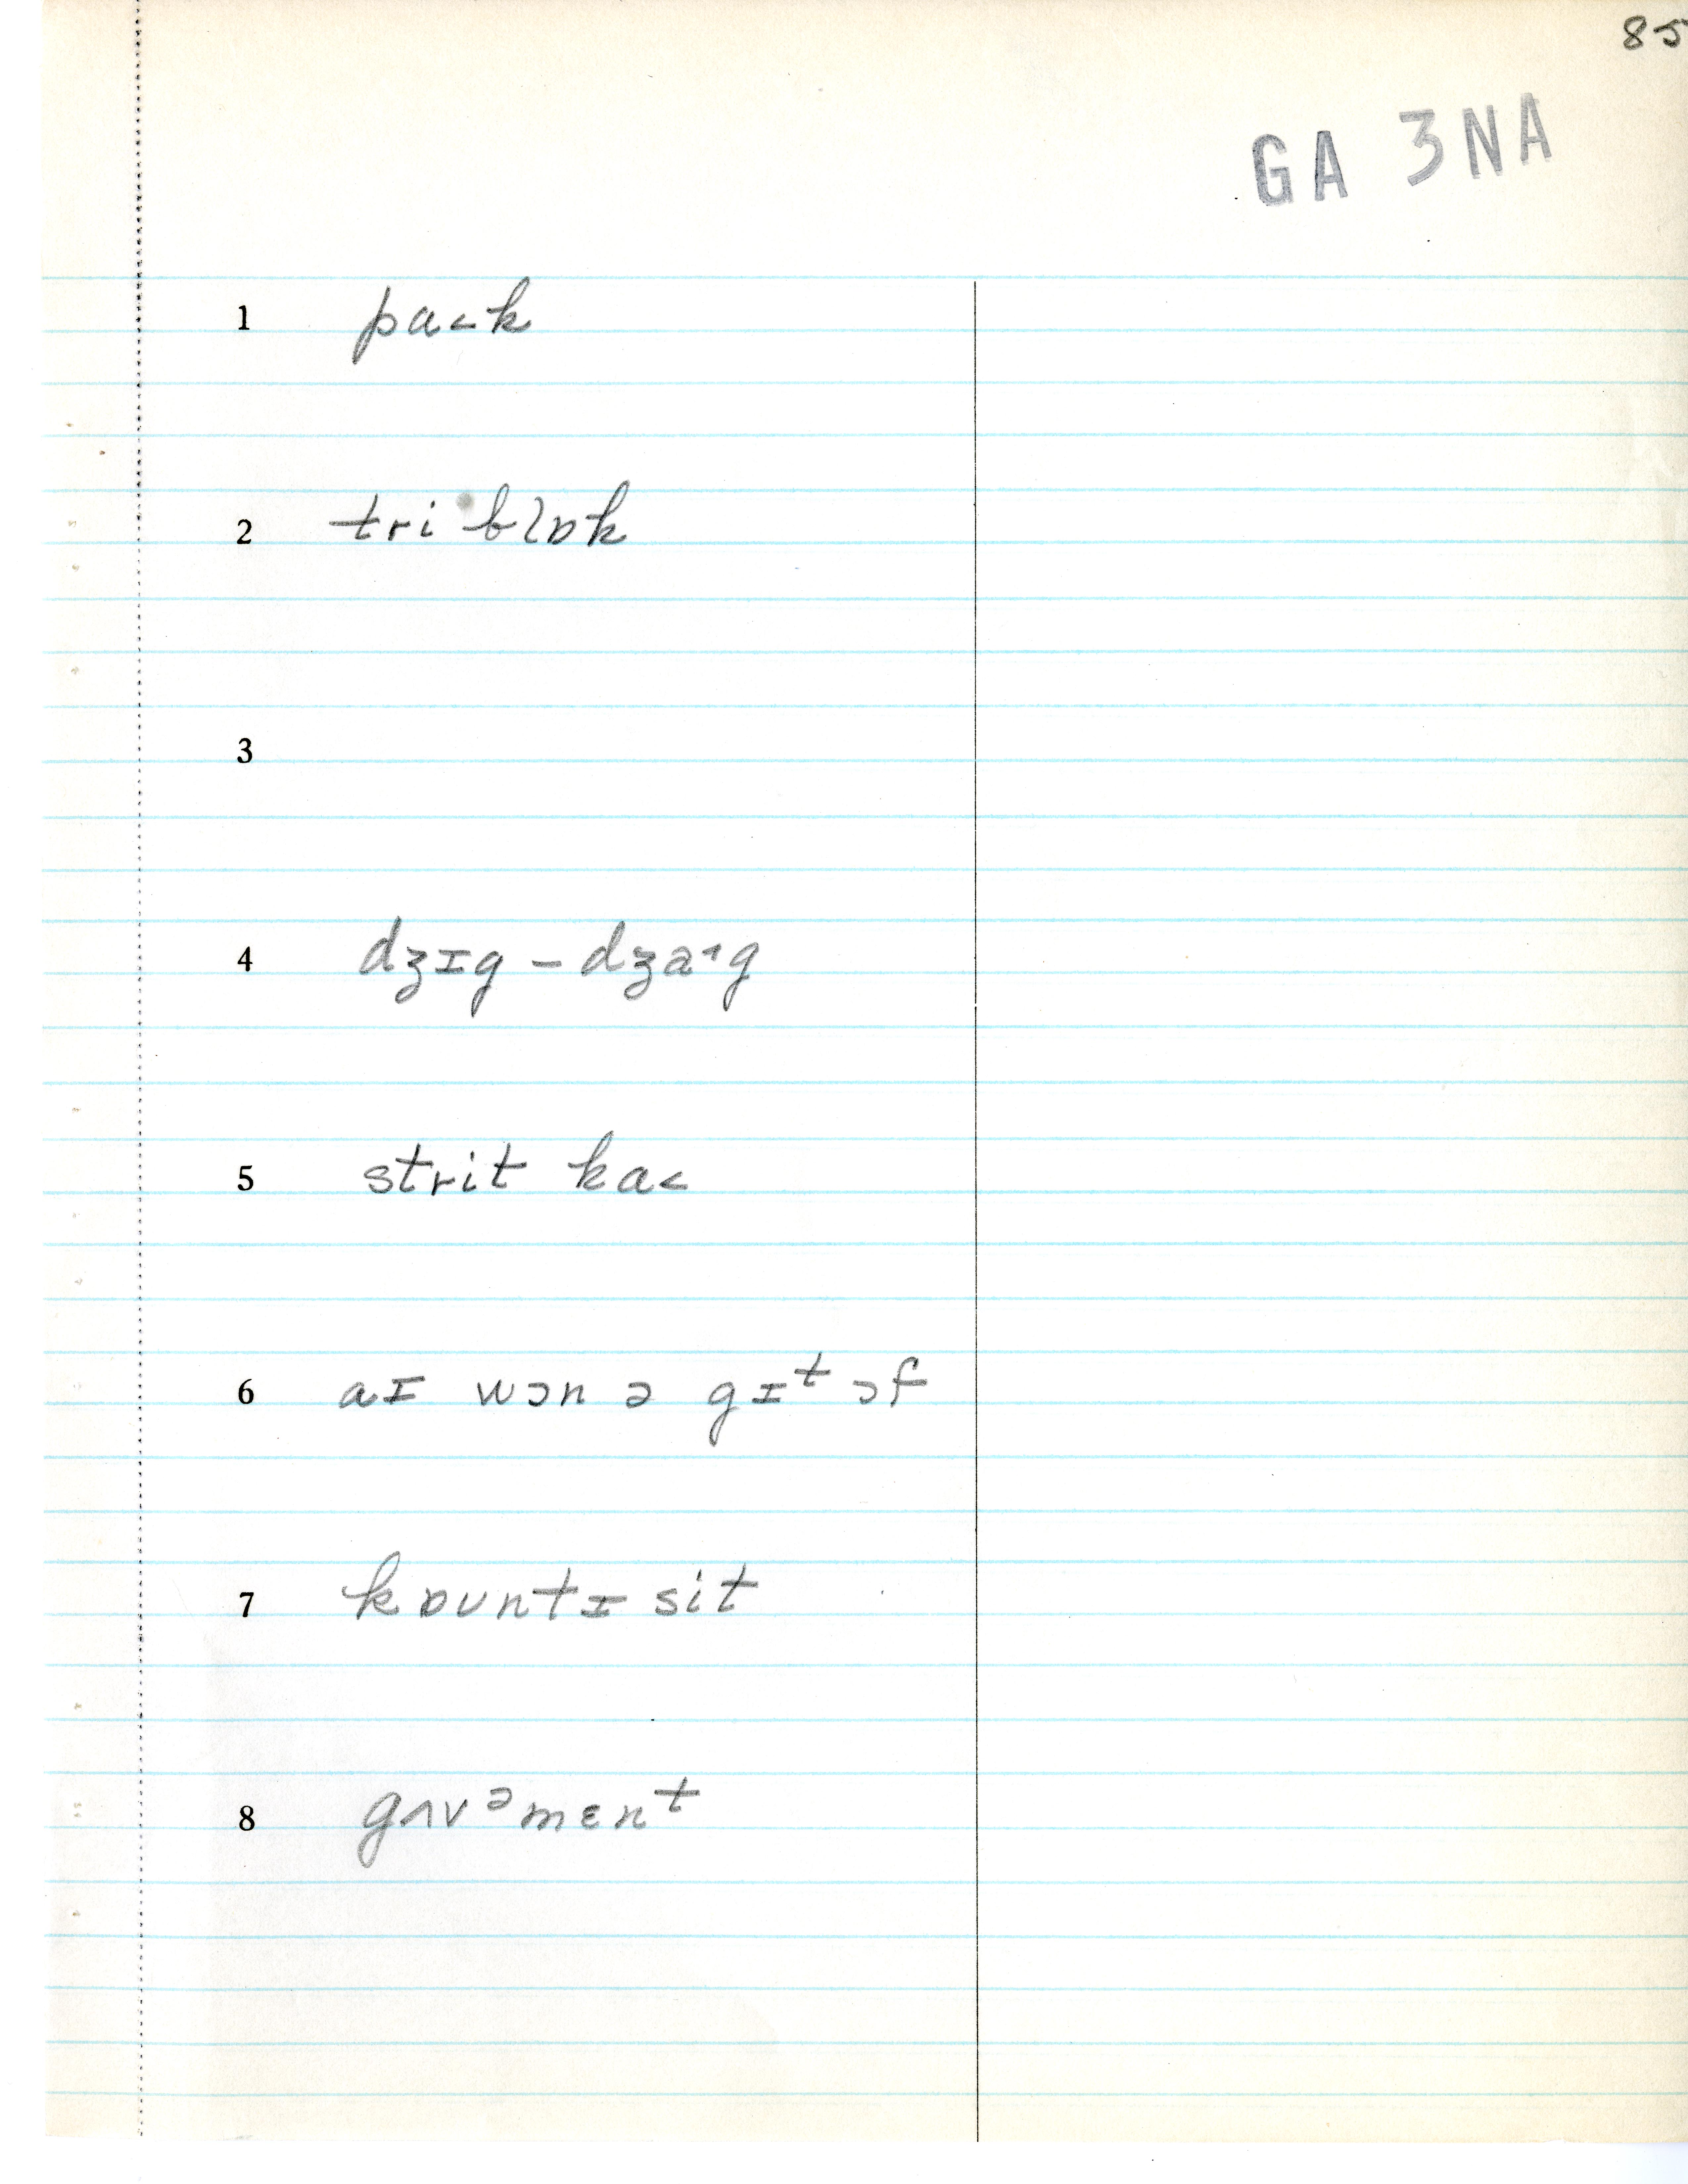 85
GA 3NA
1 pa˂k
2 tri blɒk
3
4 dʒɪg – dʒa˄g
5 strit ka˂
6 aɪ wɔn ə gɪᵗ ɔf
7 kɒʊntɪ sit
8 gʌvᵊmɛnᵗ